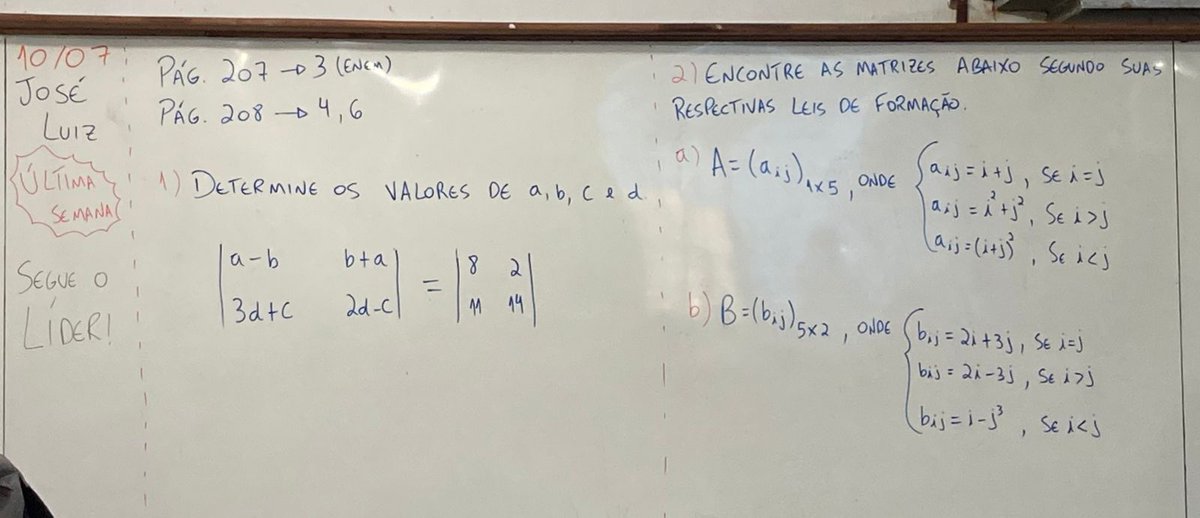 10/07
JOSÉ
LUIZ
ÚLTIMA
SEMANA
SEGUE O
LÍDER!
PÁG. 207 → 3 (ENEM)
PÁG. 208 → 4, 6
1) DETERMINE OS VALORES DE a, b, c e d.
|a-b b+a| = |8 2|
|3d+c 2d-c| |11 14|
2) ENCONTRE AS MATRIZES ABAIXO SEGUNDO SUAS
RESPECTIVAS LEIS DE FORMAÇÃO.
a) A=(aij)1x5, ONDE { aij = i+j, SE i=j
aij = i²+j², SE i>j
aij=(i+j)², SE i<j
b) B=(bij)5x2, ONDE { bij = 2i+3j, SE i=j
bij = 2i-3j, SE i>j
bij = i-j³, SE i<j